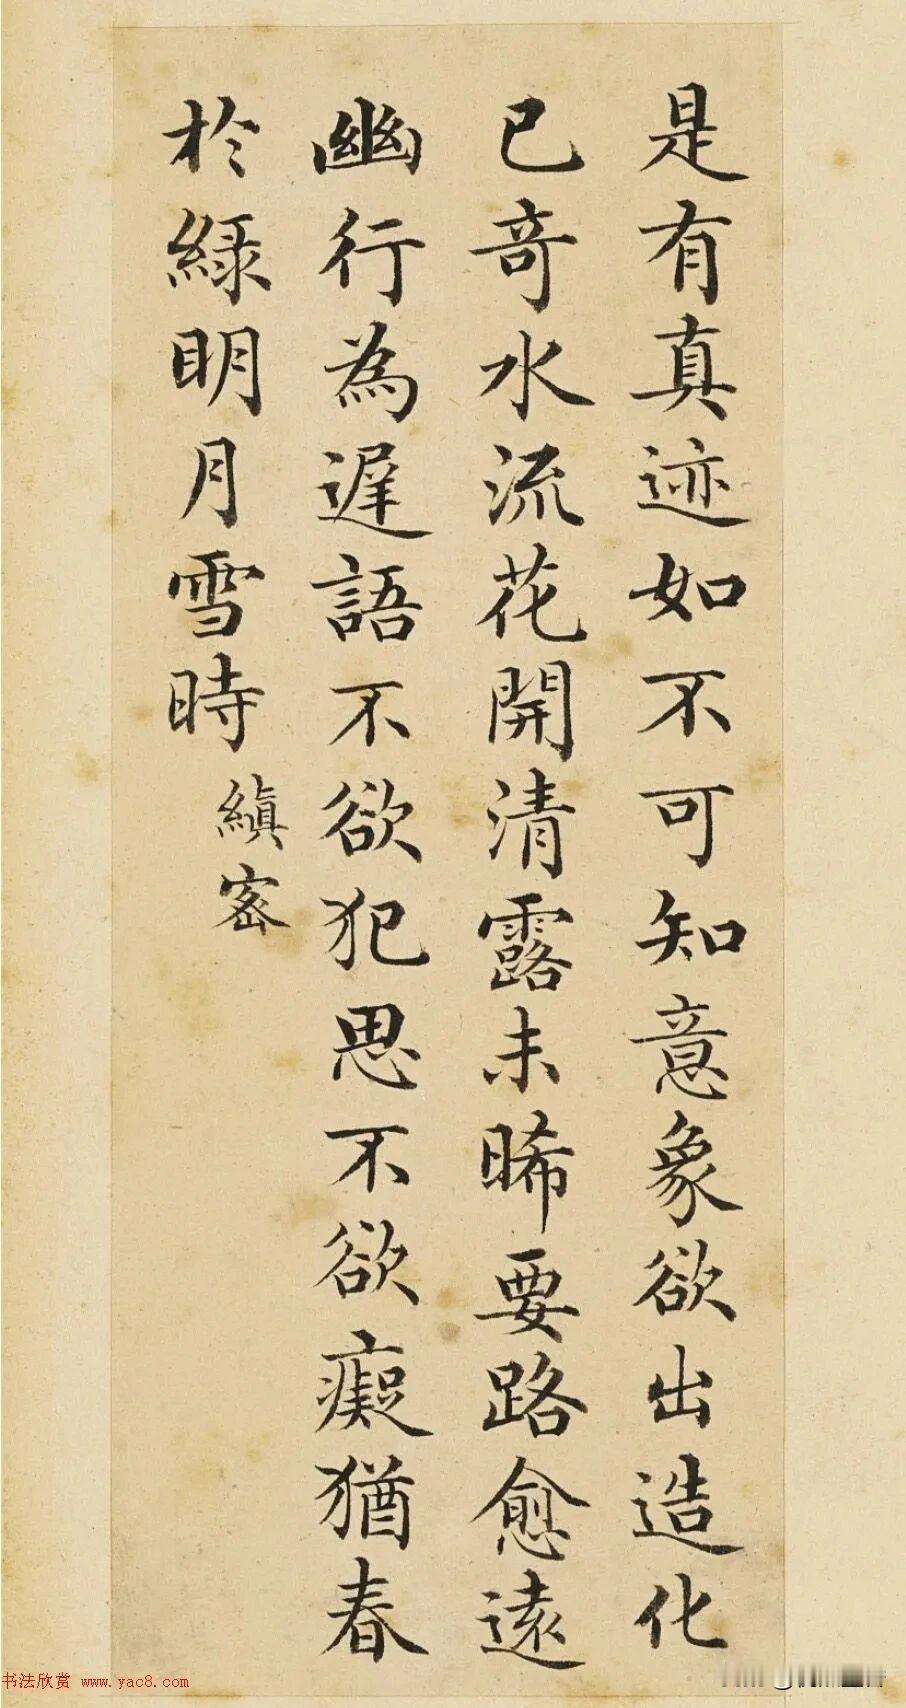 是有真迹如不可知意象欲出造化
已竒水流花開清露未晞要路愈遠
幽行為遲語不欲犯思不欲癡猶春
於綠明月雪時 縝密
书法欣赏 www.yac8.com